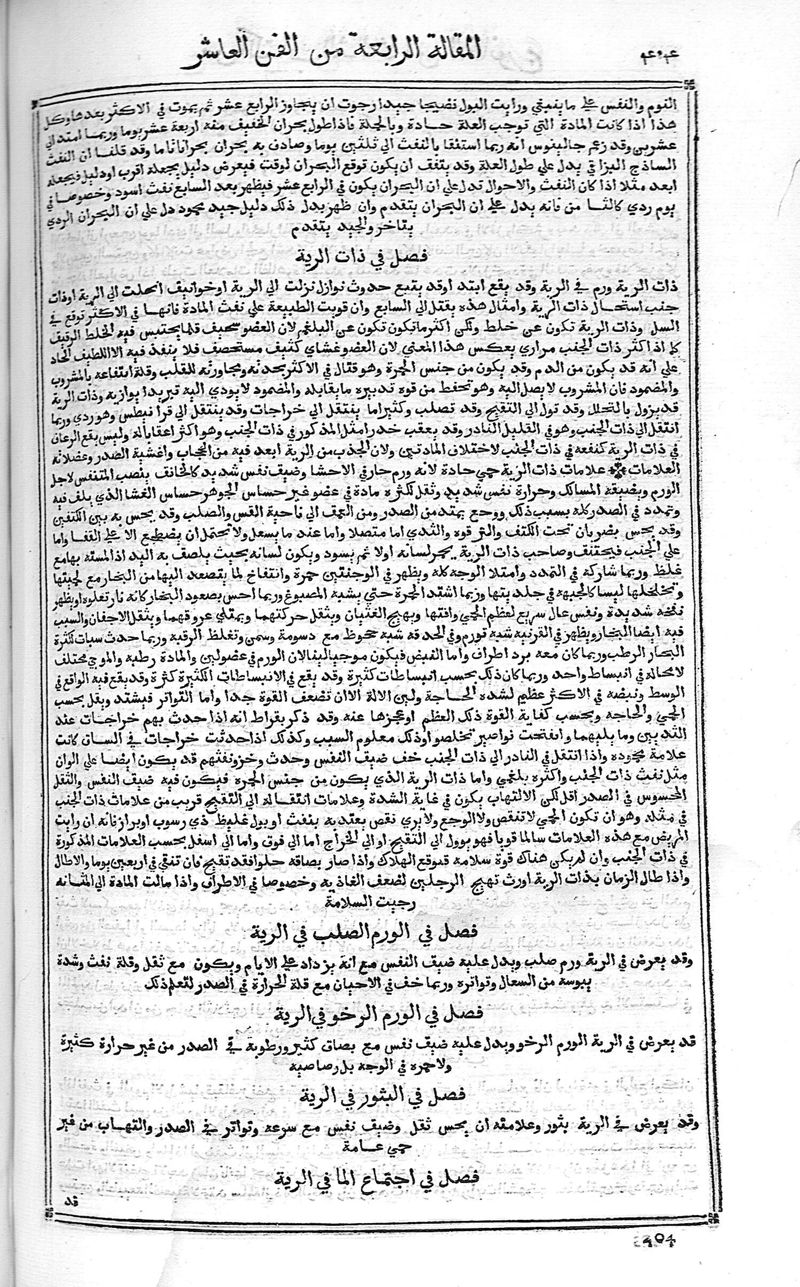 المقالة الرابعة من الفن العاشر
النوم والنفس على ما ينبغي ورايت البول نضيجا جيدا رجوت ان يتجاوز الرابع عشر ثم يموت في الاكثر بعدها وكل
هذا اذا كانت المادة التي توجب العلة حادة وبالجملة فاذا طول بحران الخفيف منه اربعة عشر يوما وربما امتد الى
عشرين وقد زعم جالينوس انه ربما استنقا بالنفث الى ثلثين يوما وصادف به بحران بحرانا تاما وقد قلنا ان النفث
الساذج البزاقي يدل على طول العلة وقد يتفق ان يكون توقع البحران لوقت فيعرض دليل يجعله اقرب او دليل فيجعله
ابعد مثلا اذا كان النفث والاحوال تدل على ان البحران يكون في الرابع عشر فيظهر بعد السابع نفث اسود وخصوصا في
يوم ردي كالثامن فانه يدل على ان البحران يتقدم وان ظهر بدل ذلك دليل جيد محمود دل على ان البحران الردي
يتاخر والجيد يتقدم
فصل في ذات الرية
ذات الرية ورم في الرية وقد يقع ابتدا وقد يتبع حدوث نوازل نزلت الى الرية او خوانيق انحلت الى الرية او ذات
جنب استحال ذات الرية وامثال هذه يقتل الى السابع وان قويت الطبيعة على نفث المادة فانها في الاكثر توقع في
السل وذات الرية تكون عن خلط ولكن اكثر ما تكون تكون عن البلغم لان العضو سخيف قلما يحتبس فيه الخلط الرقيق
كما اذا كثر ذات الجنب مراري بعكس هذا المعنى لان العضو غشاي كثيف مستحصف فلا ينفذ فيه الا اللطيف الحاد
على انه قد يكون من الدم وقد يكون من جنس الحمرة وهو قتال في الاكثر بحدته ومجاورته للقلب وقلة انتفاعه بالمشروب
والمضمود فان المشروب لا يصل اليه وهو تحفظ من قوة تدبيره ما يقابله والمضمود لا يودي اليه تبريدا يوازيه وذات الرية
قد يزول بالتحلل وقد تول الى التقيح وقد تصلب وكثيرا ما ينتقل الى خراجات وقد ينتقل الى قرانيطس وهو ردي وربما
انتقل الى ذات الجنب وهو في القليل النادر وقد يعقب خدرا مثل المذكور في ذات الجنب وهو اكثر اعقابا له وليس يقع الرعاف
في ذات الرية كنفعه في ذات الجنب لاختلاف المادتين ولان الجذب من الرية ابعد فيه من الحجاب واغشية الصدر وعضلاته
العلامات علامات ذات الرية حمى حادة لانه ورم حار في الاحشا وضيق نفس شديد كالخانق ينصب المتنفس لاجل
الورم وبضيقه المسالك وحرارة نفس شديد وثقل لكثرة مادة في عضو غير حساس الجوهر حساس الغشا الذي يلف فيه
وتمدد في الصدر كله بسبب ذلك ووجع يمتد من الصدر ومن العمق الى ناحية القس والصلب وقد يحس به بين الكتفين
وقد يحس بضربان تحت الكتف والترقوه والثدي اما متصلا واما عند ما يسعل ولا يحتمل ان يضطجع الا على القفا واما
على الجنب فيختنق وصاحب ذات الرية يحمر لسانه اولا ثم يسود ويكون لسانه بحيث يلصق به اليد اذا لمسته بها مع
غلظ وربما شاركه في التمدد وامتلا الوجه كله ويظهر في الوجنتين حمرة وانتفاخ لما يتصعد اليها من البخار مع لحميتها
وتخلخلها ليسا كالجبهة في جلديتها وربما اشتد الحمرة حتى يشبه المصبوغ وربما احس بصعود البخار كانه نار تعلوه او يظهر
نفخه شديدة ونفس عال سريع لعظم الحمى وافتها ويهيج العينان ويثقل حركتهما ويمتلي عروقهما ويثقل الاجفان والسبب
فيه ايضا البخار ويظهر في القرنيه شبه تورم وفي الحدقه شبه جحوظ مع دسومة وسمن وتغلظ الرقبه وربما حدث سبات لكثرة
البخار الرطب وربما كان معه برد اطراف واما النبض فيكون موجيا لينا لان الورم في عضو لين والمادة رطبه والموجي مختلف
لا محاله في انبساط واحد وربما كان ذلك بحسب انبساطات كثيرة وقد يقع في الانبساطات الكثيرة كثرة وقد يقع فيه الواقع في
الوسط ونبضه في الاكثر عظيم لشده الحاجة ولين الالة الا ان تضعف القوة جدا واما التواتر فيشتد ويقل بحسب
الحمى والحاجه وبحسب كفاية القوة ذلك العظم او عجزها عنه وقد ذكر بقراط انه اذا حدث بهم خراجات عند
الثديين وما يليهما وانفتحت نواصير تخلصوا وذلك معلوم السبب وكذلك اذا حدثت خراجات في الساق كانت
علامة محموده واذا انتقل في النادر الى ذات الجنب خف ضيق النفس وحدث وخز ونفثهم قد يكون ايضا على الوان
مثل نفث ذات الجنب واكثره بلغمي واما ذات الرية الذي يكون من جنس الحمره فيكون فيه ضيق النفس والثقل
المحسوس في الصدر اقل لكن الالتهاب يكون في غاية الشدة وعلامات انتقاله الى التقيح قريب من علامات ذات الجنب
في مثله وهو ان تكون الحمى لا تنقص ولا الوجع ولا يري نقص يعتد به بنفث او بول غليظ ذي رسوب او براز فانه ان رايت
المريض مع هذه العلامات سالما قويا فهو يوول الى التقيح او الى الخراج اما الى فوق واما الى اسفل بحسب العلامات المذكورة
في ذات الجنب وان لم يكن هناك قوة سلامه فتوقع الهلاك واذا صار بصاقه حلوا فقد تقيح فان تنقى في اربعين يوما والا طال
واذا طال الزمان بذات الرية اورث تهيج الرجلين لضعف الغاذية وخصوصا في الاطراف واذا مالت المادة الى المثانه
رجيت السلامة
فصل في الورم الصلب في الرية
وقد يعرض في الرية ورم صلب ويدل عليه ضيق النفس مع انه يزداد على الايام ويكون مع ثقل وقلة نفث وشدة
يبوسه من السعال وتواتره وربما خف في الاحيان مع قلة الحرارة في الصدر لتعلم ذلك
فصل في الورم الرخو في الرية
قد يعرض في الرية الورم الرخو ويدل عليه ضيق نفس مع بصاق كثير ورطوبة في الصدر من غير حرارة كثيرة
ولا حمره في الوجه بل رصاصيه
فصل في البثور في الرية
وقد يعرض في الرية بثور وعلامته ان يحس ثقل وضيق نفس مع سرعه وتواتر في الصدر والتهاب من غير
حمى عامة
فصل في اجتماع الما في الرية
قد